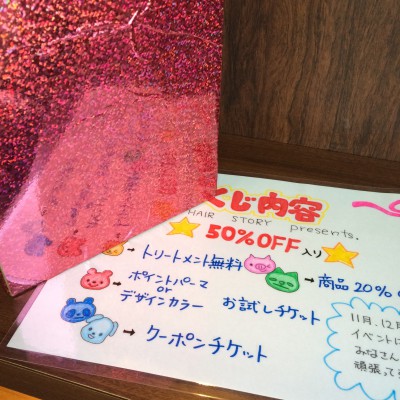 くじ内容
HAIR STORY presents.
50%OFF入り
→ トリートメント無料
→ 商品20%
→ ポイントパーマ
or
デザインカラー お試しチケット
→ クーポンチケット
11月、12月
イベントに
みなさん
頑張って